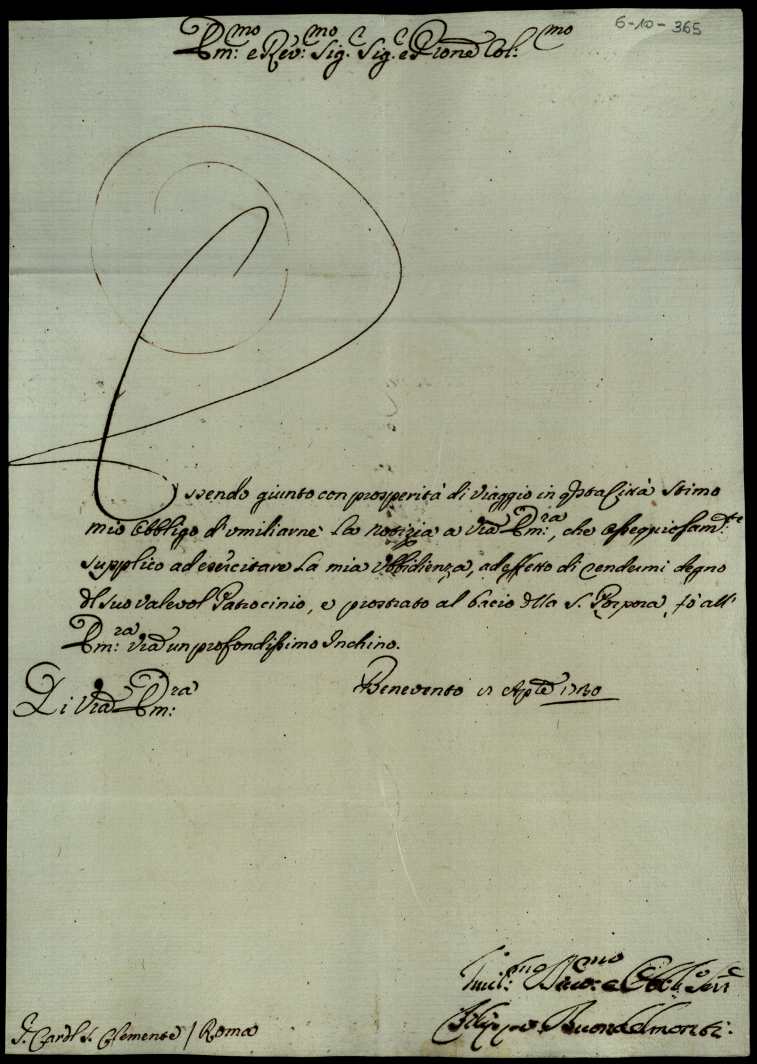 6-10-365
Em:mo e Rev:mo Sig.e Sig.e e Prone Col:mo
Essendo giunto con prosperità di Viaggio in qsta Città stimo
mio Obbligo d'umiliarne La notizia a Vra Em:ra, che ossequiosam:te
supplico ad esercitare La mia Ubbidienza, ad effetto di rendermi degno
del suo valevol Patrocinio, e prostrato al bacio della S. Porpora, fò all'
Em:ra Vra un profondissimo Inchino.
Di Vra Em:ra
Benevento 1730
Umil:mo Obblig:o
Filippo Buondelmonti.
S. Card.l S. Clemente / Roma